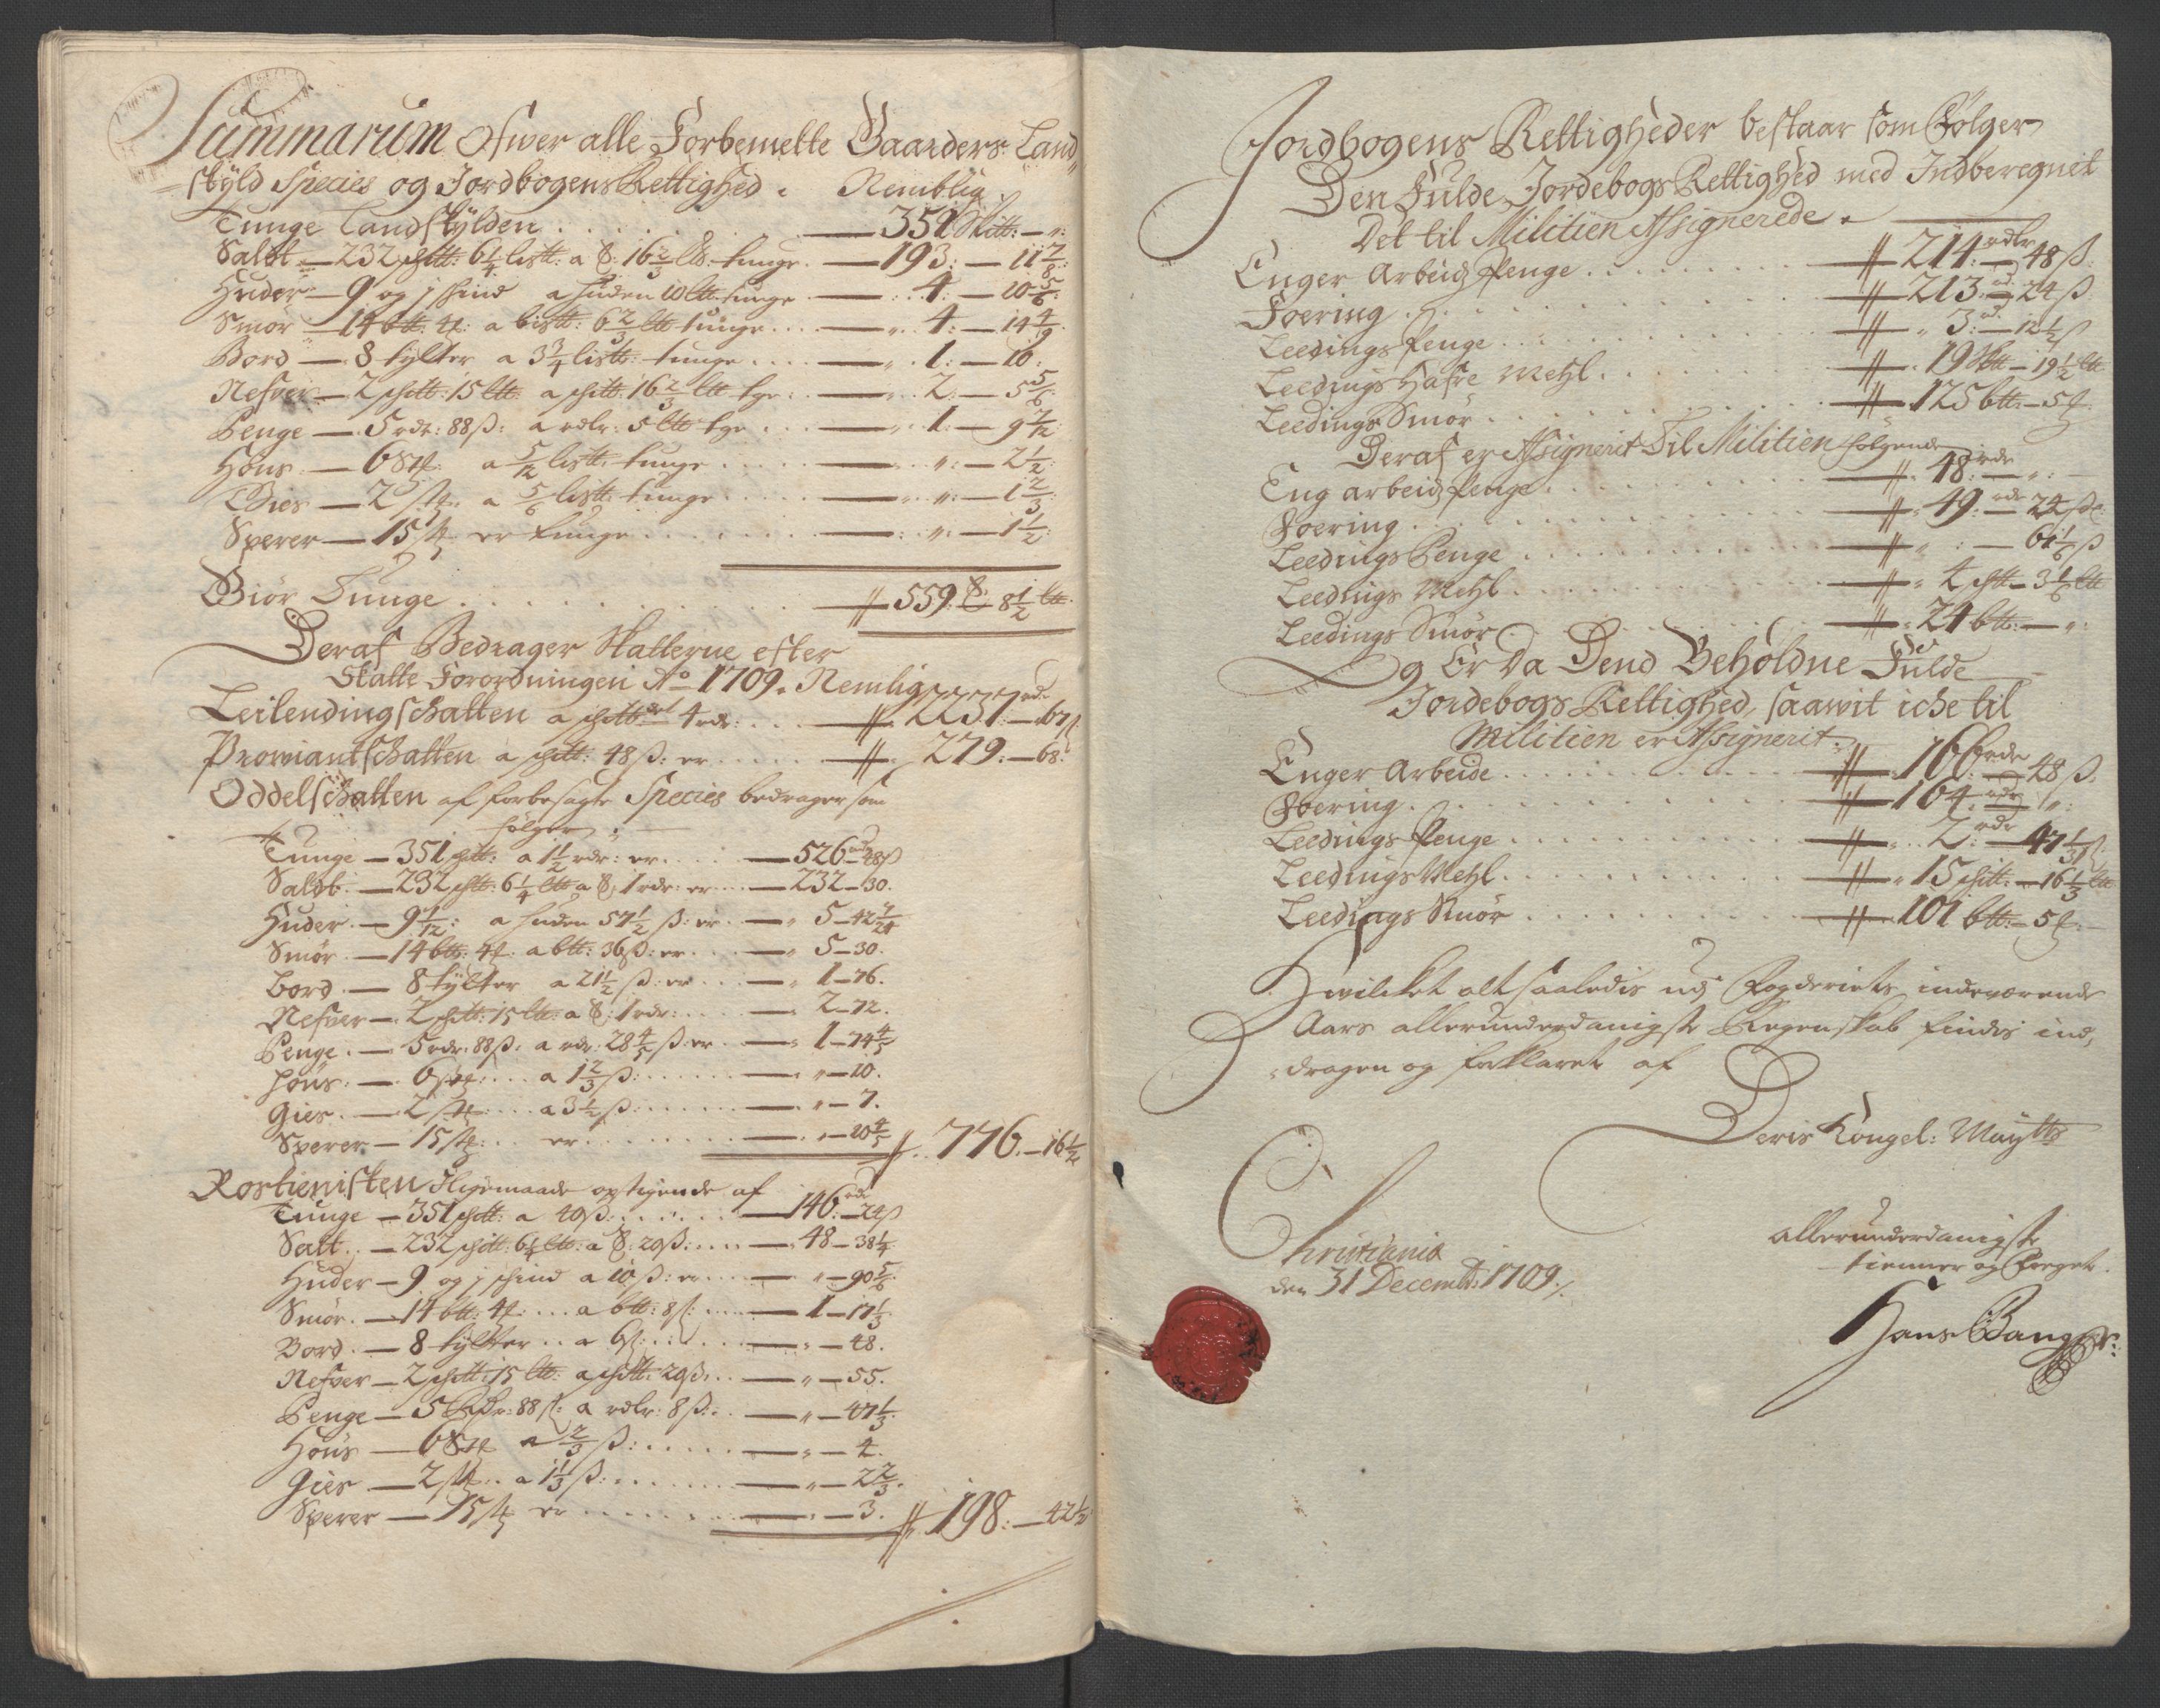 Summarum Ofwer alle Forbemelte Gaarders Land„
skyld Species og Jordbogens Rettighed. Nemblig
Tunge Landskylden . . . . . . 351 Skltt: — „:
Saldt — 232 schtt: 6 1/4 listt: a S: 16 2/3 ltt. tunge. — 193: — 11 7/8:
Huder — 9 og j skind a huden 10 ltt. tunge — 4: — 10 5/6:
Smør — 14 btt. 4 f: a bistt: 6 2/3 ltt tunge . . . — 4: — 14 4/9:
Bord — 8 tylter a 3 3/4 listt: tunge . . . . — 1: — 10:
Nefver — 2 schtt: 15 ltt: a schtt. 16 2/3 ltt tge: — 2: — 5 5/6:
Penge — 5 rdr: 88 ß: a rdlr: 5 ltt tge . . . — 1: — 9 7/12:
Høns — 6 Stf: a 5/12 listt: tunge . . . . — „: — 2 1/2:
Gies — 2 stf. a 5/6 listt: tunge . . . . — „: — 1 2/3:
Sperer — 15 stf er tunge . . . . . — „: — 1 1/2:
Giør Tunge . . . . . . . # 559 S: 8 1/2 ltt.
Deraf Bedrager Skatterne efter
Skatte Forordningen Ao 1709. Nemlig
Leilendingschatten a schtt 4 rdr: . . # 2237 rdr — 67 ß
Proviantschatten a schtt: 48 ß: er . . . . # 279. — 68:
Oddelschatten af forbesagte Species bedrager som
følger:
Tunge — 351 schtt: a 1 1/2 rdr: er . . . — 526 rd — 48 ß
Saldt: — 232 schtt: 6 1/4 ltt a S: 1 rdr: er . . — 232 — 30.
Huder. — 9 1/12: a huden 57 1/2 ß: er — „ 5 — 42 7/24
Smør. — 14 btt: 4 f: a btt: 36 ß: er . . . — „ 5 — 30.
Bord. — 8 tylter a 21 1/2 ß: er . . . — „ 1 — 76.
Nefver — 2 schtt: 15 ltt: a S: 1 rdr: . . . . — „ 2 — 72.
Penge. — 5 rdr: 88 ß: a rdr: 28 4/5 ß: er — „ 1 — 74 4/5
Høns: — 6 stf: . . . a 1 2/3 ß: . . . . . — „ — 10.
Gies. — 2 stf: . . . a 3 1/2 ß: . . . . . — „ — 7.
Sperer — 15 stf: . . er . . . . . . — „ — 20 4/5 # 776. — 16 1/2
Rostienisten ligemaade opstigende af
Tunge — 351 schtt: a 40 ß: . . . . . — 146 rd — 24 ß
Salt. — 232 schtt: 6 1/4 ltt: a S: 20 ß: . . . . — 48 — 38 1/4
Huder — 9 og j skind a 10 ß: er . . . — „ — 90 5/6
Smør. — 14 btt: 4 f: . . . a btt: 8 ß: . . . . — 1 — 17 1/3
Bord. — 8 tylter . . a 6 ß: . . . . . — „ — 48.
Nefver — 2 schtt: 15 ltt: a schtt: 20 ß: . . — „ — 55.
Penge — 5 Rdr: 88 ß: a rdlr: 8 ß: . . — „ — 47 1/3.
Høns — 6 Stf a 2/3 ß: . . . . . — „ — 4.
Gies — 2 stf . . a 1 1/3 ß: . . . . . . — „ — 2 2/3.
Sperer — 15 stf er . . . . . . — „ — 3. # 198: — 42 1/2
Jordbogens Rettigheder bestaar som Følger
Den Fulde Jordebogs Rettighed med Indberegnit
Det til Militien Assignerede.
Enger Arbeidz Penge . . . . . . . # 214 rdlr 48 ß:
Foering . . . . . . . . # 213 rd: 24 ß:
Leedings Penge . . . . . . . # „ 3 rd: — 12 1/2 ß
Leedings Hafre Mehl . . . . . . # 19 schtt — 19 1/2 ltt
Leedings Smør . . . . . . . # 125 btt: — 5 f:
Deraf er Assignerit Til Militien følgende
Eng arbeidz Penge . . . . . . . # 48: rdr — „: —
Foering . . . . . . . . # 49: rdr 24 ß
Leedings Penge . . . . . . # „ : — 61 1/6 ß
Leedings Mehl . . . . . . . # „ 4 schtt — 3 1/6 ltt
Leedings Smør . . . . . . . # „ 24 btt: — „:
Og Er da Dend Beholdne Fulde
Jordebogs Rettighed, saawit iche til
Militien er Assignerit:
Enger Arbeide . . . . . . . # 166 rdr 48 ß.
Foering . . . . . . . . # 164 rdr „:
Leedings Penge . . . . . . . # 2: rdr — 47 1/3 ß
Leedings Mehl . . . . . . . # 15 schtt: — 16 1/3 ltt
Leedings Smør . . . . . . . # 101 btt: — 5 f: —
Hvilcket alt saaledis udj Fogderiets indeværende
Aars allerunderdanigste Regenskab findis ind„
dragen og forklaret af
Deris Kongel: Mayts
allerunderdanigste
tienner og Foget.
Christiania
den 31 Decembr: 1709.
Hans Bang